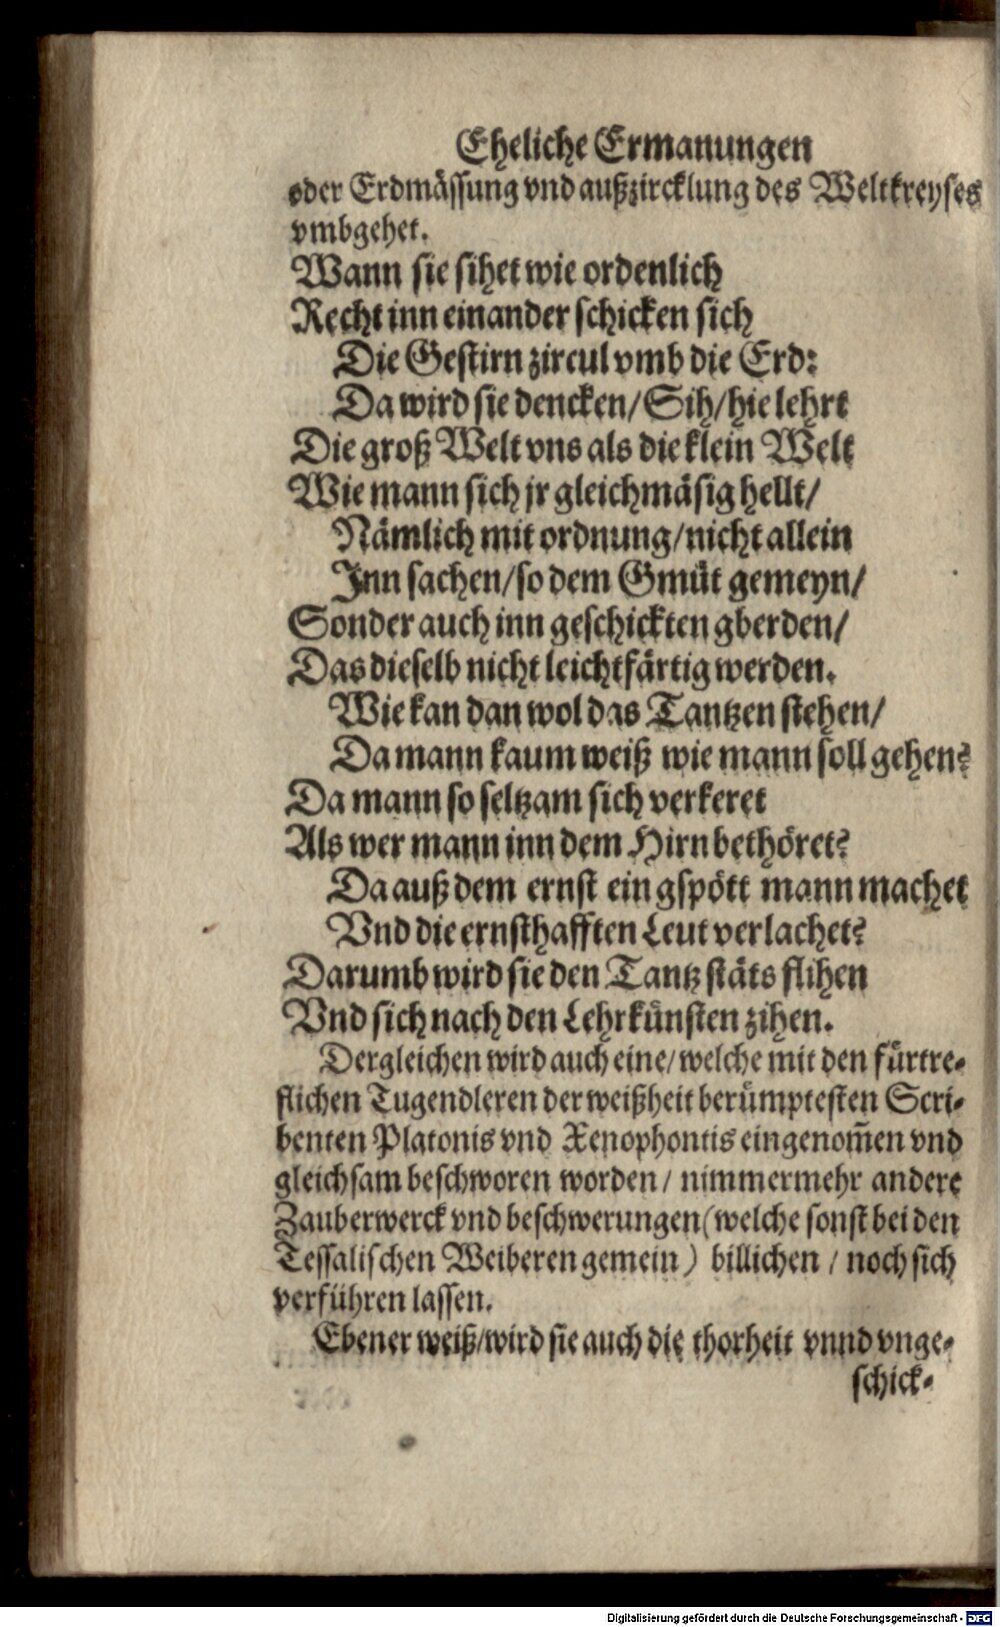 Eheliche Ermanungen
oder Erdmässung vnd außzircklung des Weltkreyses
vmbgehet.
Wann sie sihet wie ordenlich
Recht inn einander schicken sich
Die Gestirn zircul vmb die Erd:
Da wird sie dencken/ Sih/ hie lehrt
Die groß Welt vns als die klein Welt
Wie mann sich jr gleichmäsig hellt/
Nämlich mit ordnung/ nicht allein
Inn sachen/ so dem Gmüt gemeyn/
Sonder auch inn geschickten gberden/
Das dieselb nicht leichtfärtig werden.
Wie kan dan wol das Tantzen stehen/
Da mann kaum weiß wie mann soll gehen?
Da mann so seltzam sich verkeret
Als wer mann inn dem Hirn bethöret?
Da auß dem ernst ein gspött mann machet
Vnd die ernsthafften Leut verlachet?
Darumb wird sie den Tantz stäts flihen
Vnd sich nach den Lehrkünsten zihen.
Dergleichen wird auch eine/ welche mit den fürtre-
flichen Tugendleren der weißheit berümptesten Scri-
benten Platonis vnd Xenophontis eingenom̄en vnd
gleichsam beschworen worden/ nimmermehr andere
Zauberwerck vnd beschwerungen (welche sonst bei den
Tessalischen Weiberen gemein) billichen / noch sich
verführen lassen.
Ebener weiß/ wird sie auch die thorheit vnnd vnge-
schick-
Digitalisierung gefördert durch die Deutsche Forschungsgemeinschaft - DFG